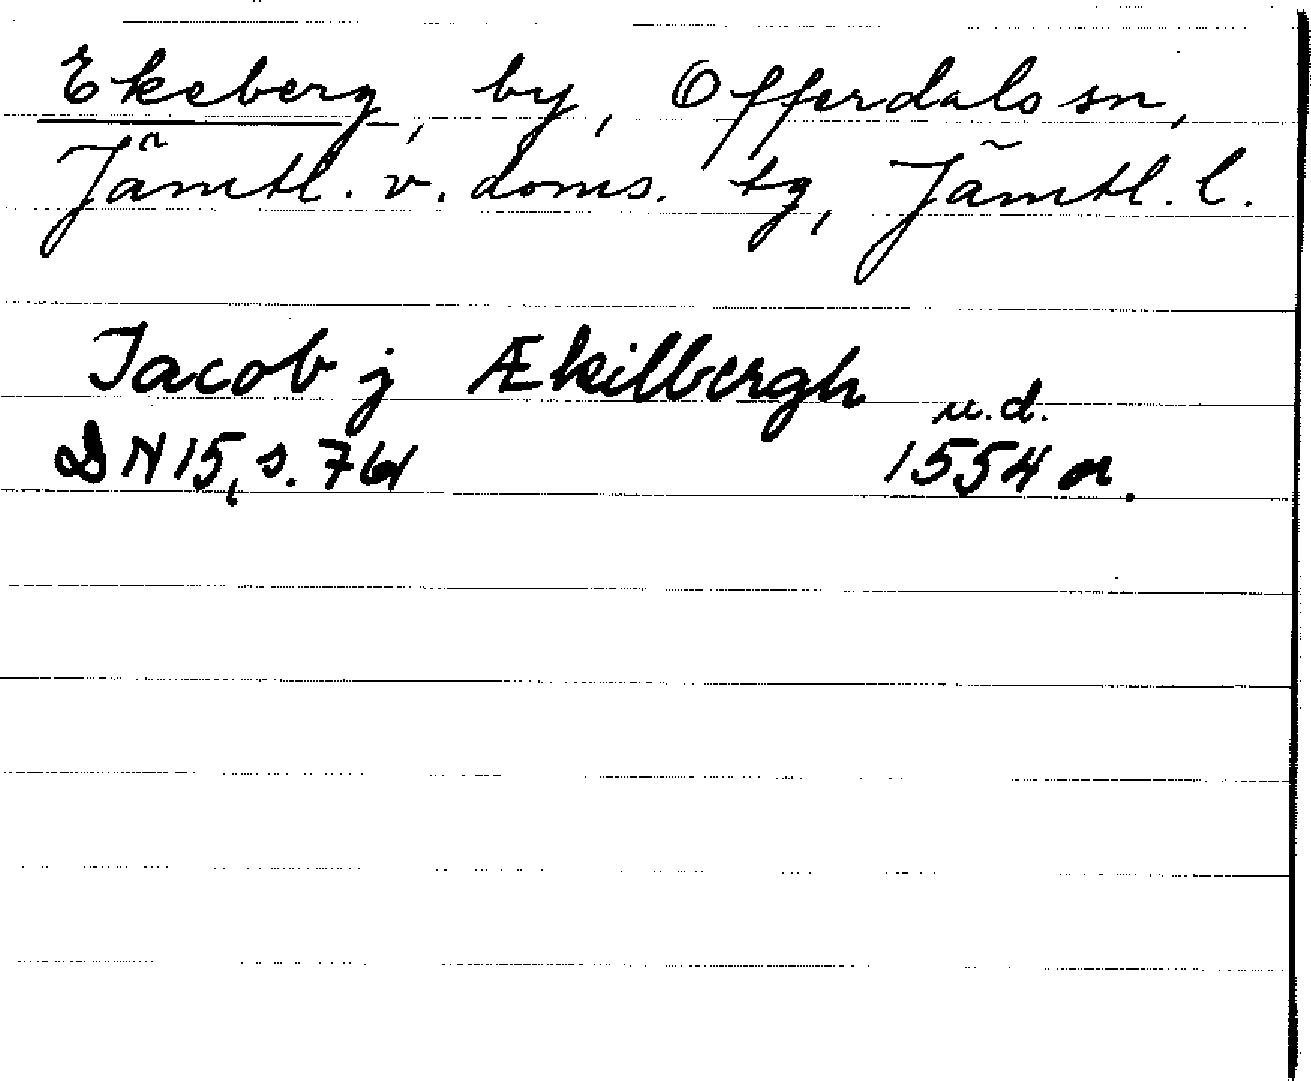 Ekeberg, by, Offerdals sn,
Jämtl. v. doms. tg, Jämtl. l.
Jacob j Ækilbergh u.d.
DN 15, s. 761 1554 or.